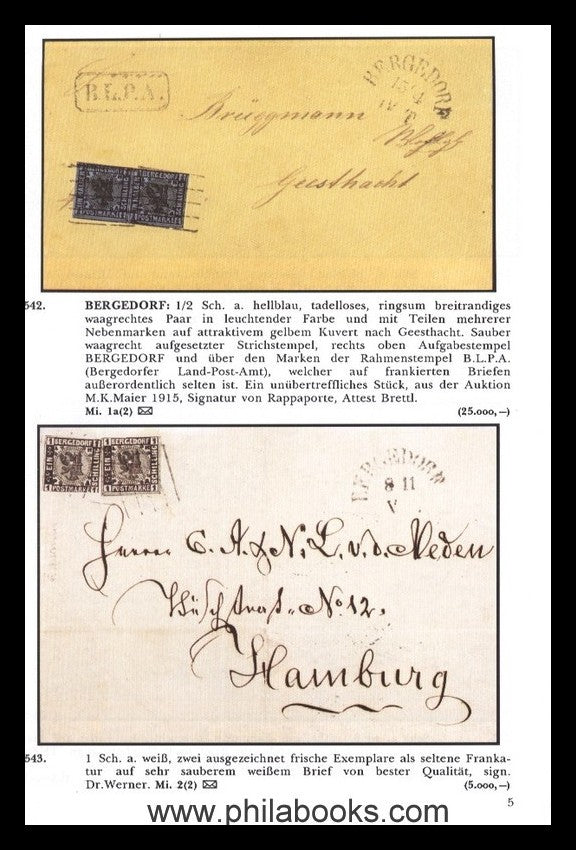 B.L.P.A.
BERGEDORF
Brüggmann
Geesthacht
BERGEDORF
POSTMARKE
BERGEDORF
POSTMARKE
542. BERGEDORF: 1/2 Sch. a. hellblau, tadelloses, ringsum breitrandiges
waagrechtes Paar in leuchtender Farbe und mit Teilen mehrerer
Nebenmarken auf attraktivem gelbem Kuvert nach Geesthacht. Sauber
waagrecht aufgesetzter Strichstempel, rechts oben Aufgabestempel
BERGEDORF und über den Marken der Rahmenstempel B.L.P.A.
(Bergedorfer Land-Post-Amt), welcher auf frankierten Briefen
außerordentlich selten ist. Ein unübertreffliches Stück, aus der Auktion
M.K.Maier 1915, Signatur von Rappaporte, Attest Brettl.
Mi. 1a(2) (25.000,—)
BERGEDORF
EIN SCHILLING
POSTMARKE
BERGEDORF
EIN SCHILLING
POSTMARKE
BERGEDORF
8 11
V
Herren C. A. & N. L. v. d. Meden
No 12.
Hamburg
543. 1 Sch. a. weiß, zwei ausgezeichnet frische Exemplare als seltene Franka-
tur auf sehr sauberem weißem Brief von bester Qualität, sign.
Dr.Werner. Mi. 2(2) (5.000,—)
5
www.philabooks.com